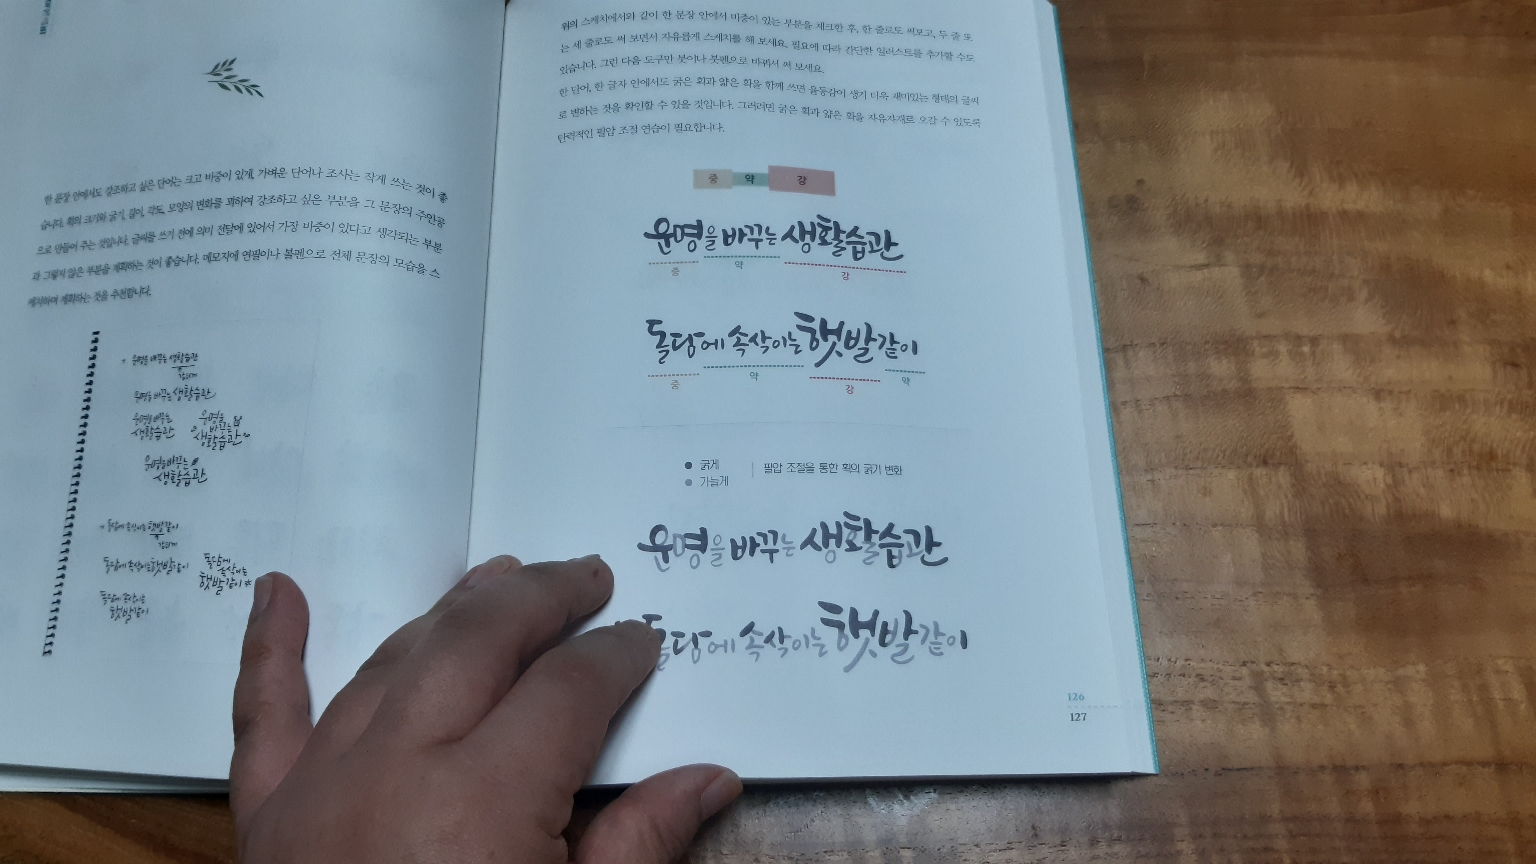 한 문장 안에서도 강조하고 싶은 단어는 크고 비중이 있게, 가벼운 단어나 조사는 작게 쓰는 것이 좋
습니다. 획의 크기와 굵기, 길이, 각도, 모양의 변화를 꾀하여 강조하고 싶은 부분을 그 문장의 주인공
으로 만들어 주는 것입니다. 글씨를 쓰기 전에 의미 전달에 있어서 가장 비중이 있다고 생각되는 부분
과 그렇지 않은 부분을 계획하는 것이 좋습니다. 메모지에 연필이나 볼펜으로 전체 문장의 모습을 스
케치하여 계획하는 것을 추천합니다.
운명을 바꾸는 생활습관
강하게
운명을 바꾸는 생활습관
운명을 바꾸는
생활습관
운명을
바꾸는
생활습관
운명을 바꾸는
생활습관
돌담에 속삭이는 햇발같이
강하게
돌담에 속삭이는 햇발같이
돌담에
속삭이는
햇발같이
돌담에 속삭이는
햇발같이
위의 스케치에서와 같이 한 문장 안에서 비중이 있는 부분을 체크한 후, 한 줄로도 써보고, 두 줄 또
는 세 줄로도 써 보면서 자유롭게 스케치를 해 보세요. 필요에 따라 간단한 일러스트를 추가할 수도
있습니다. 그런 다음 도구만 붓이나 붓펜으로 바꿔서 써 보세요.
한 단어, 한 글자 안에서도 굵은 획과 얇은 획을 함께 쓰면 율동감이 생겨 더욱 재미있는 형태의 글씨
로 변하는 것을 확인할 수 있을 것입니다. 그러려면 굵은 획과 얇은 획을 자유자재로 오갈 수 있도록
탄력적인 필압 조절 연습이 필요합니다.
중 약 강
운명을 바꾸는 생활습관
중 약 강
돌담에 속삭이는 햇발같이
중 약 강 약
굵게
가늘게
필압 조절을 통한 획의 굵기 변화
운명을 바꾸는 생활습관
돌담에 속삭이는 햇발같이
126
127